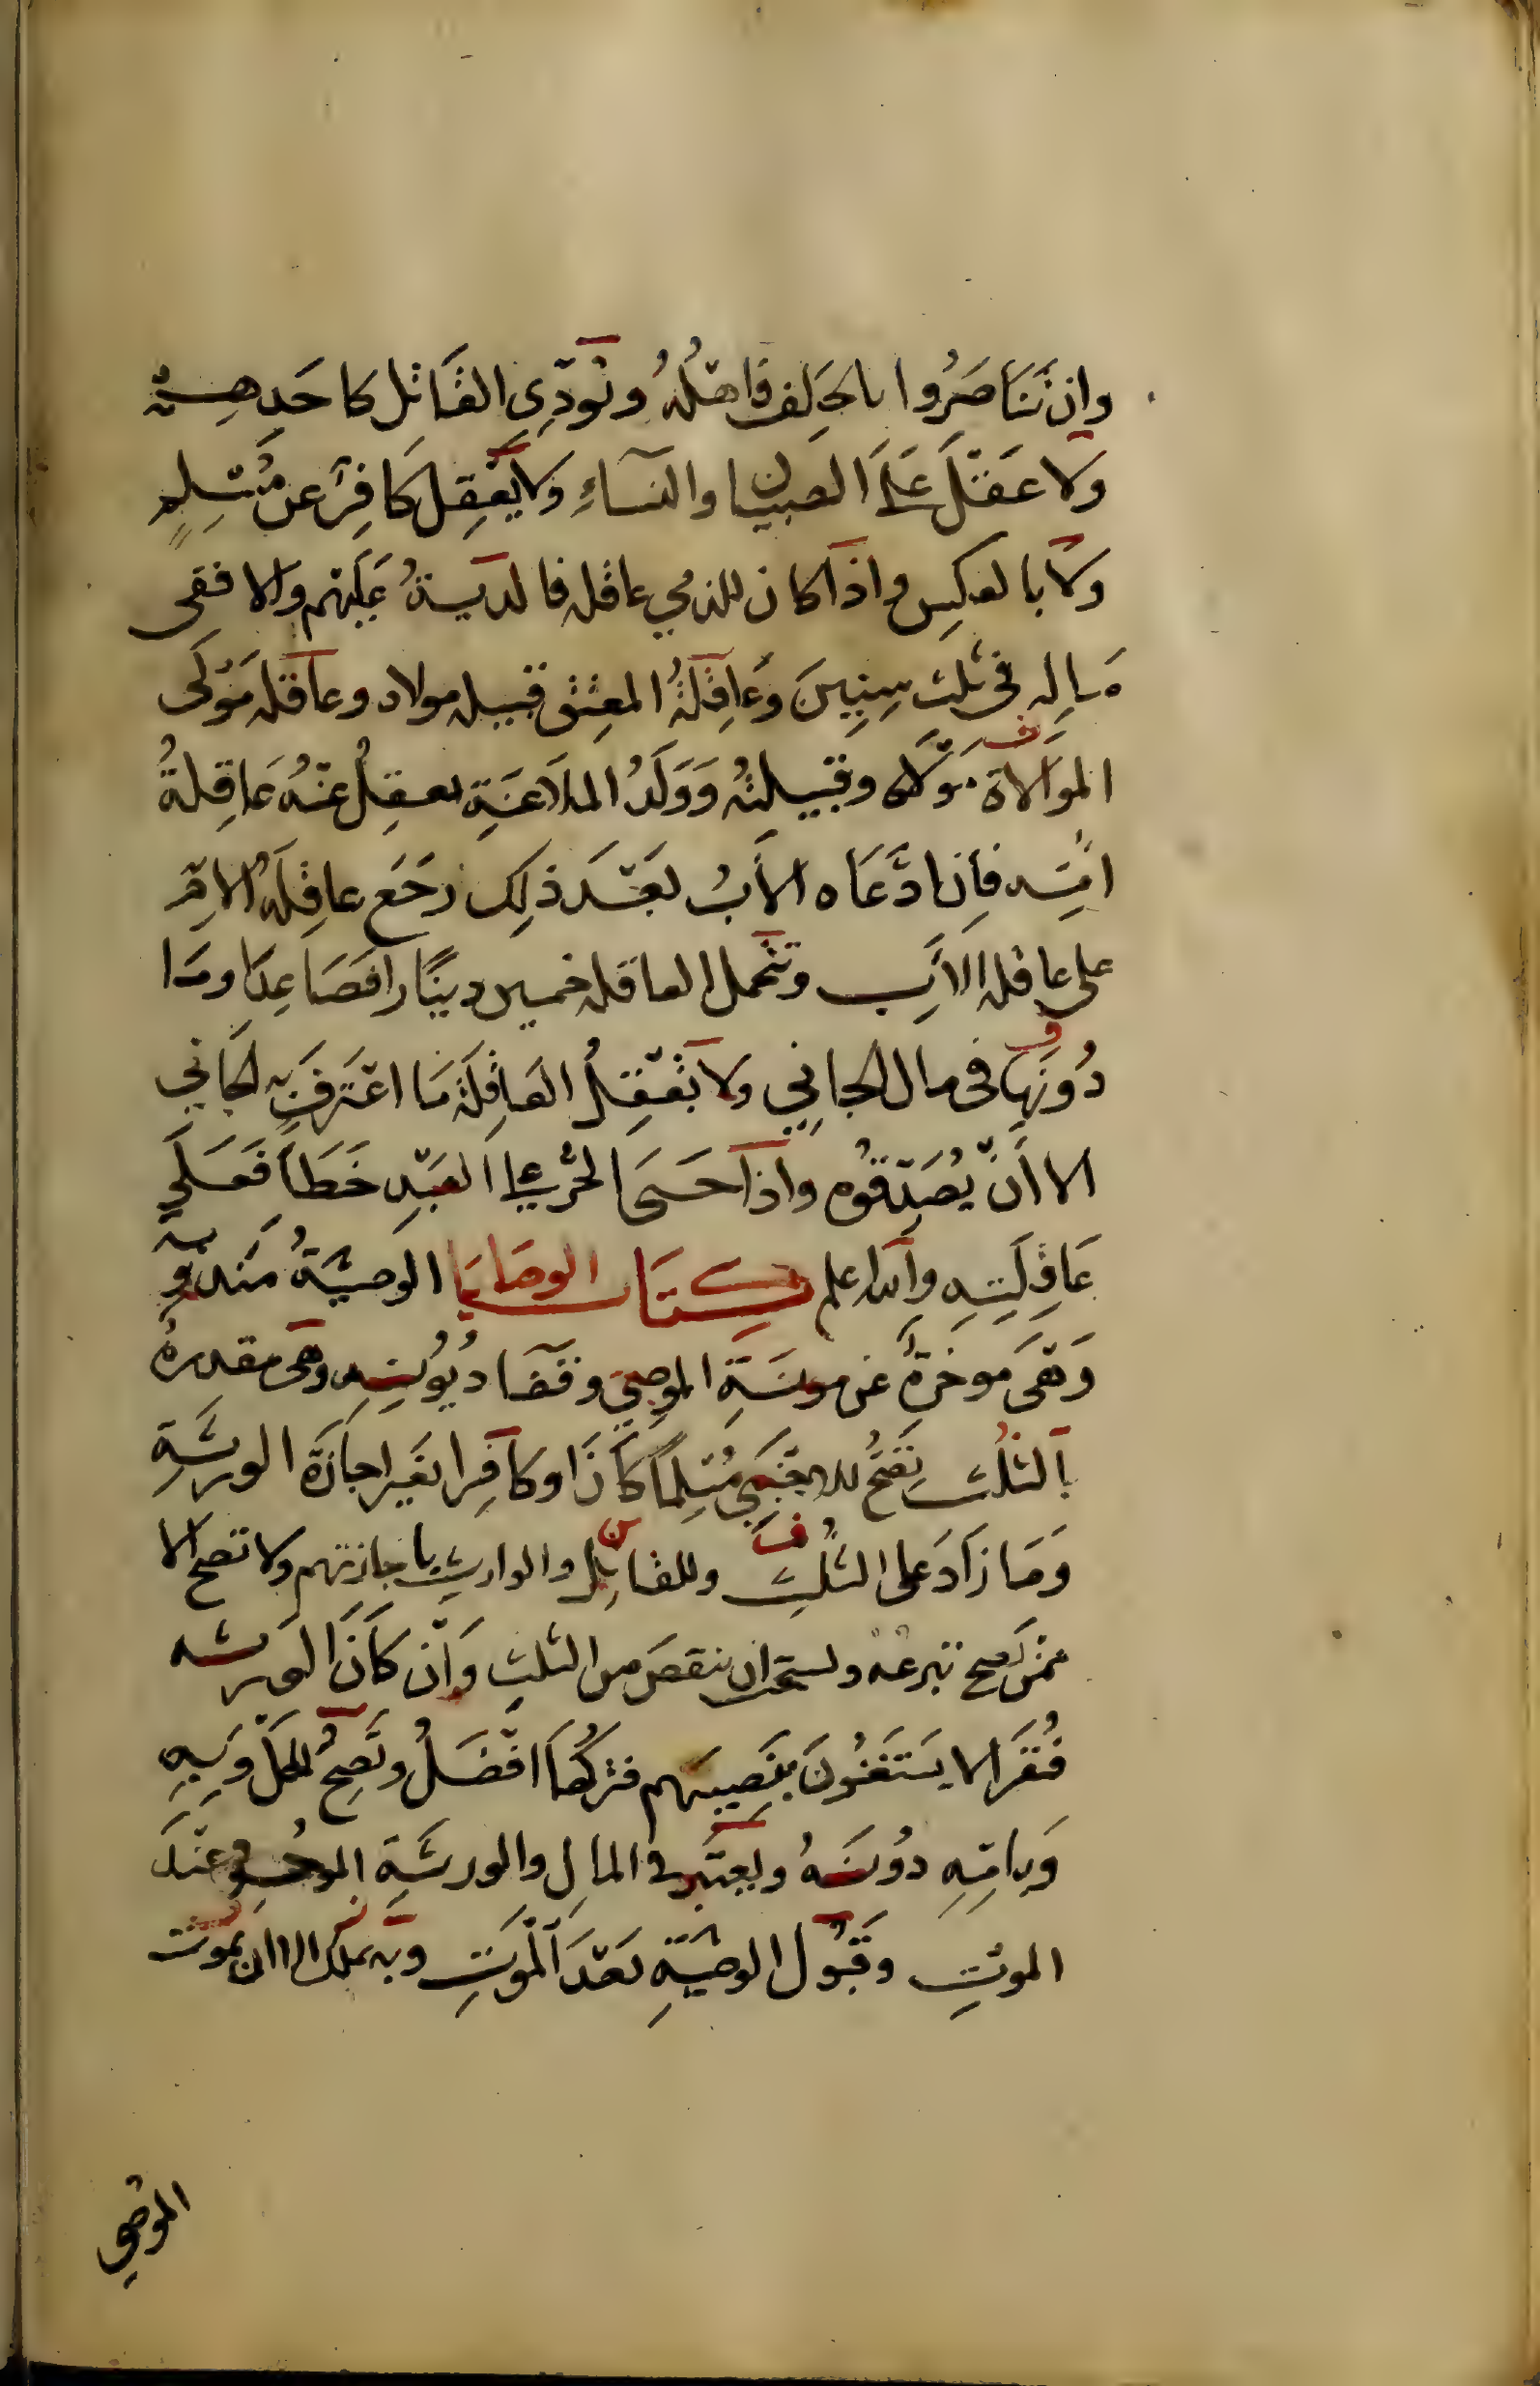 وان تناصروا بالحلف فاهله ويودي القاتل كاحدهم
ولا عقل على الصبيان والنساء ولا يعقل كافر عن مسلم
ولا بالعكس واذا كان للذمي عاقله فالدية عليهم والا ففي
ماله في ثلث سنين وعاقلة المعتق قبيله مولاه وعاقله مولى
الموالاة مولاه وقبيلته وولد الملاعنة يعقل عنه عاقلة
امه فان ادعاه الاب بعد ذلك رجع عاقلة الام
على عاقله الاب وتتحمل العاقله خمسين دينارا فصاعدا وما
دونها في مال الجاني ولا تعقل العاقلة ما اعترف به الجاني
الا ان يصدقوه واذا جنى الحر على العبد خطأ فعلى
عاقلته والله اعلم كتاب الوصايا الوصية مندوبة
وهي موخرة عن مونة الموصي وقضاء ديونه وهي مقدرة
بالثلث تصح للاجنبي مسلما كان او كافرا بغير اجازة الورثة
وما زاد على الثلث وللقاتل والوارث باجازتهم ولا تصح الا
ممن يصح تبرعه ويستحب ان ينقص من الثلث وان كان الورثه
فقرا لا يستغنون بنصيبهم فتركها افضل وتصح للحمل وبه
وبامه دونه ويعتبر في المال والورثة الموجود عند
الموت وقبول الوصية بعد الموت وبه يملك الا ان يموت
الموصي